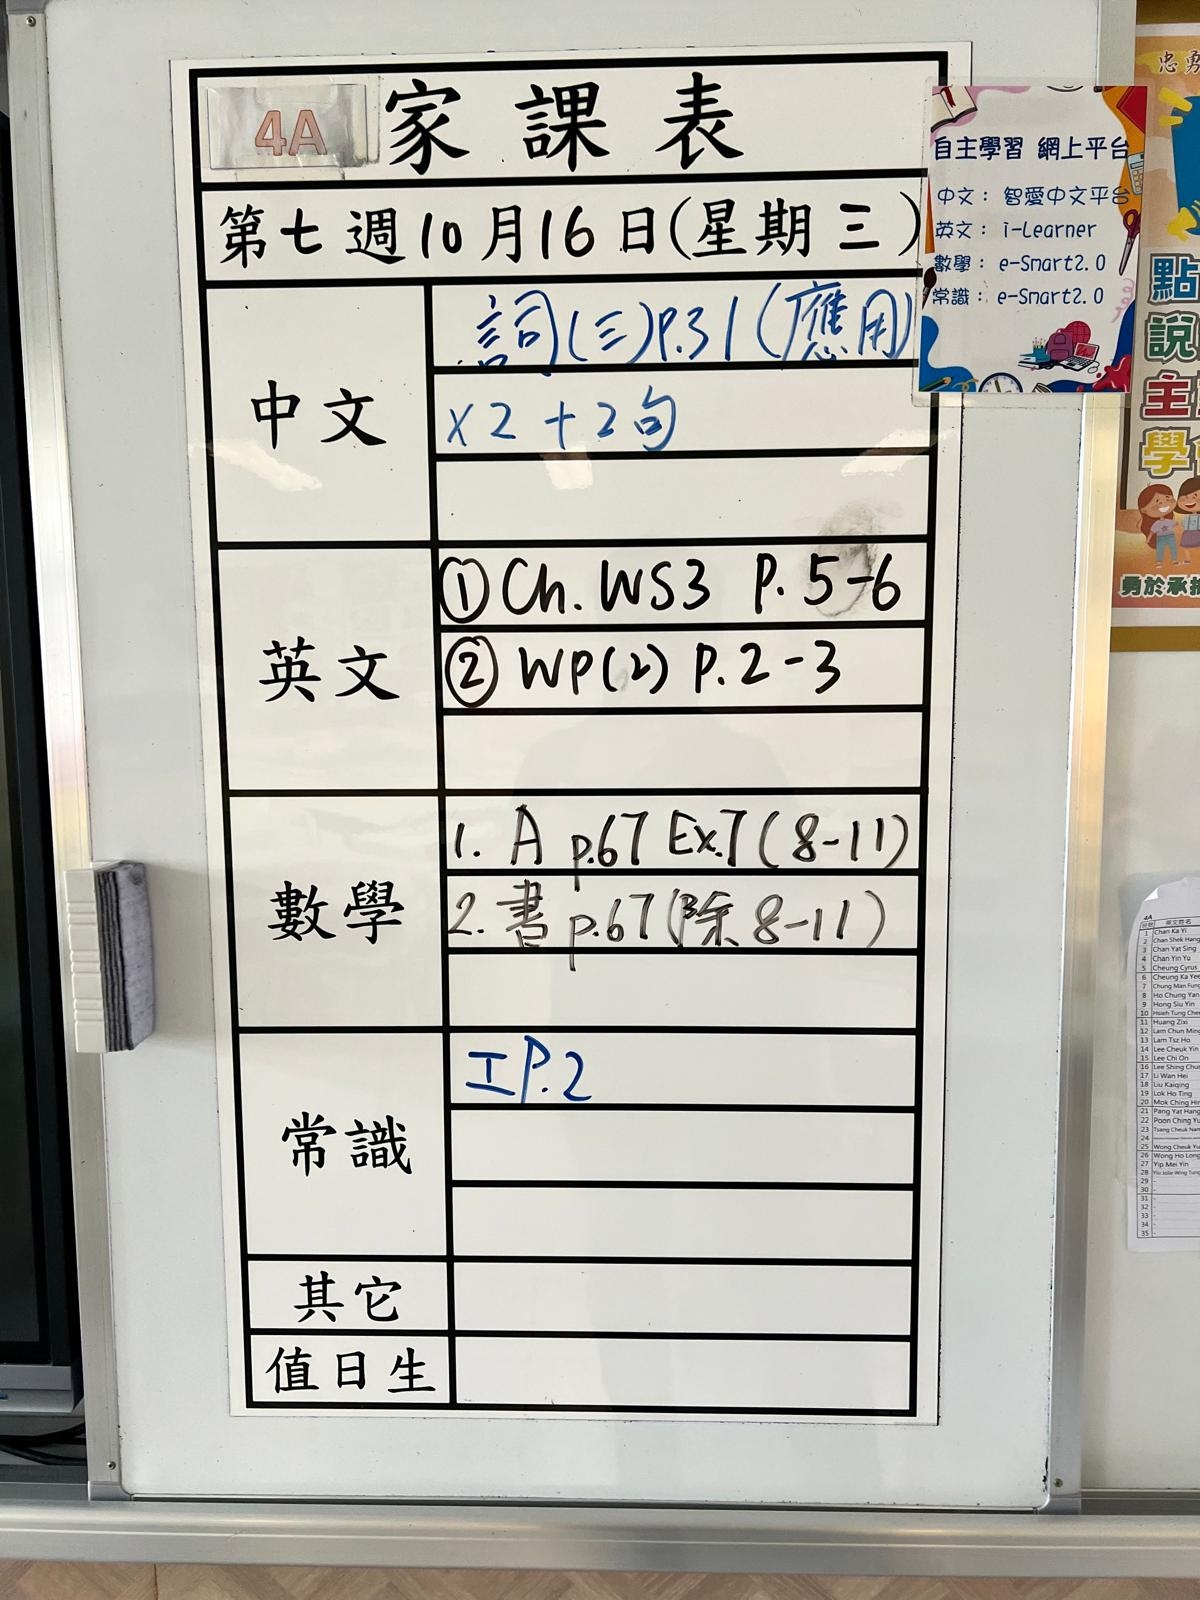 4A 家課表
第七週10月16日(星期三)
中文
詞(三)P.31(應用)
x2+2句
英文
① Ch. WS3 P. 5-6
② WP(2) P.2-3
數學
1. A p.67 Ex.7(8-11)
2. 書 p.67(除8-11)
常識
工P.2
其它
值日生
自主學習 網上平台
中文： 智愛中文平台
英文： i-Learner
數學： e-Smart2.0
常識： e-Smart2.0
忠勇
點
說
主
學
勇於承擔
4A
1 Chan Ka Yi
2 Chan Shek Hang
3 Chan Yat Sing
4 Chan Yin Yu
5 Cheung Cyrus
6 Cheung Ka Yee
7 Chung Man Fung
8 Ho Chung Yan
9 Hong Siu Yin
10 Hsieh Tung Cher
11 Huang Zixi
12 Lam Chun Ming
13 Lam Tsz Ho
14 Lee Cheuk Yin
15 Lee Chi On
16 Lee Shing Chun
17 Li Wan Hei
18 Liu Kaiqing
19 Lok Ho Ting
20 Mok Ching Hin
21 Pang Yat Hang
22 Poon Ching Yu
23 Tsang Cheuk Nam
24
25 Wong Cheuk Yu
26 Wong Ho Long
27 Yip Mei Yin
28 Yiu Jolie Wing Tung
29 -
30 -
31 -
32 -
33 -
34 -
35 -